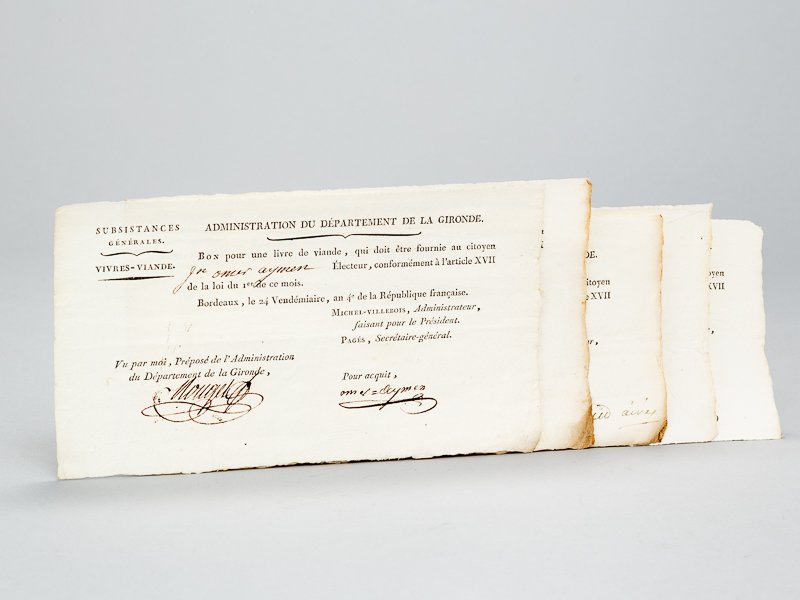 SUBSISTANCES
GÉNÉRALES.
VIVRES-VIANDE.
ADMINISTRATION DU DÉPARTEMENT DE LA GIRONDE.
BON pour une livre de viande, qui doit être fournie au citoyen
omer aymen Électeur, conformément à l'article XVII
de la loi du 1er de ce mois.
Bordeaux, le 24 Vendémiaire, an 4e de la République française.
MICHEL-VILLEBOIS, Administrateur,
faisant pour le Président.
PAGÈS, Secrétaire-général.
Vu par moi, Préposé de l'Administration
du Département de la Gironde,
Pour acquit,
omer=aymen
DE.
citoyen
XVII
oyen
XVII